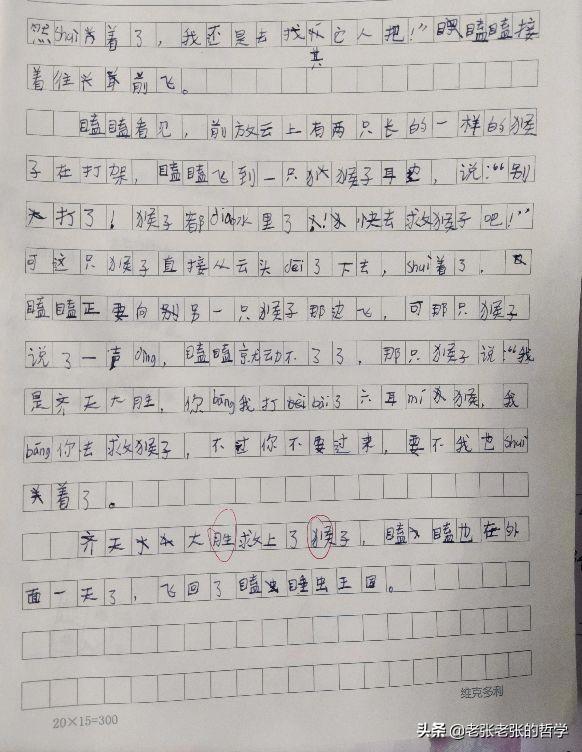 然shui着了，我还是去找其它人把！”瞌瞌接
着往前飞。
瞌瞌看见，前放云上有两只长的一样的猴
子在打架，瞌瞌飞到一只猴子耳边，说：“别
打了！猴子都diao水里了！快去求救猴子吧！”
可这只猴子直接从云头dāi了下去，shuì着了。
瞌瞌正要向另一只猴子那边飞，可那只猴子
说了一声dìng，瞌瞌就动不了了，那只猴子说：“我
是齐天大胜，你bāng我打bài了六耳mí猴，我
bāng你去救猴子，不过你不要过来，要不我也shuì
着了。
齐天大胜救上了猴子，瞌瞌也在外
面一天了，飞回了瞌睡虫王国。
20×15=300
维克多利
头条 @老张老张的哲学